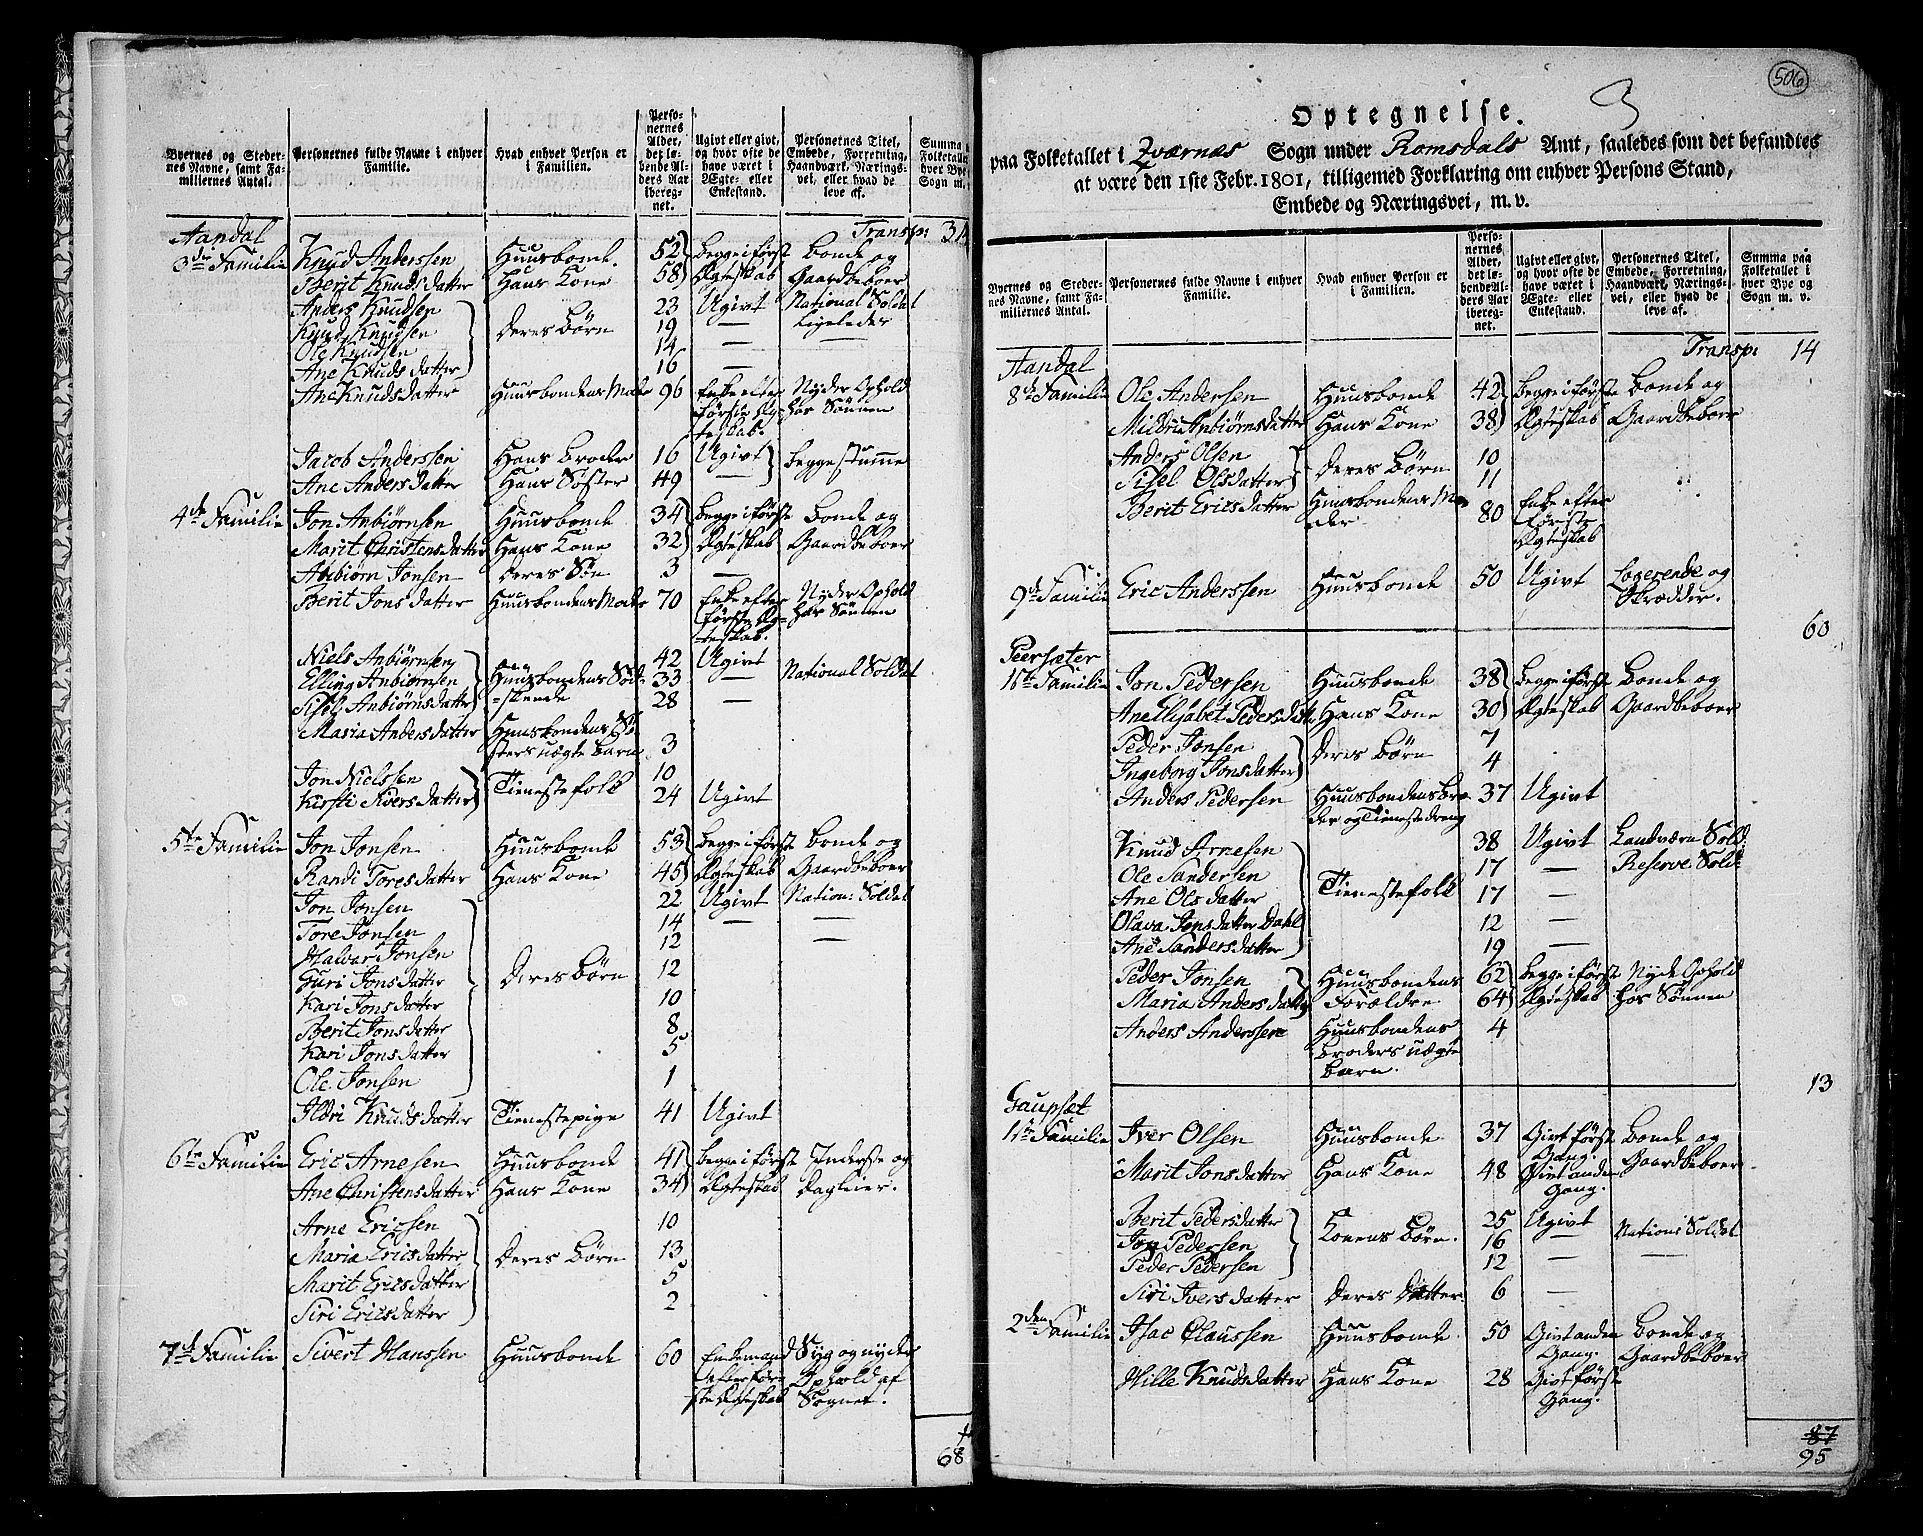 Byernes og Steder-
nes Navne, samt Fa-
miliernes Antal.
Personernes fulde Navne i enhver
Familie.
Hvad enhver Person er
i Familien.
Perso-
nernes
Alder,
det lø-
bende Al-
ders Aar
iberegnet.
Ugivt eller givt,
og hvor ofte de
have været i
Ægte- eller
Enkestand.
Personernes Titel,
Embede, Forretning,
Haandværk, Nærings-
vei, eller hvad de
leve af.
Summa
Folketallet
hver Bye
Sogn m.
Aandal Transp: 31
3de Familie Knud Anderssen Huusbonde 52 Begge i første Bonde og
Berit Knuds datter Hans Kone 58 Ægteskab Gaardbeboer
Anders Knudsen 23 Ugivt National Soldat
Knud Knudsen Deres Børn 19 — Ligeledes
Ole Knudsen 14 — —
Ane Knuds datter 16 —
Ane Knuds datter Huusbondens Moder 96 Enke efter Nyder Ophold
første Æg- hos Sønnen
teskab.
Jacob Anderssen Hans Broder 16 Ugivt Begge stumme
Ane Anders datter Hans Søster 49 —
4de Familie Jon Anbiørnsen Huusbonde 34 Begge i første Bonde og
Marit Christens datter Hans Kone 32 Ægteskab Gaardbeboer
Anbiørn Jonsen Deres Søn 3 —
Berit Jons datter Huusbondens Moder 70 Enke efter Nyder Ophold
første Æg- hos Sønnen
teskab.
Niels Anbiørnsen 42 Ugivt
Elling Anbiørnsen Huusbondens Sød- 33 — National Soldat
Sisel Anbiørnsdatter skende 28 —
Maria Anders datter Huusbondens Sø-
sters uægte Barn 3
Jon Nielssen Tienestefolk 10
Kirsti Sivers datter 24 Ugivt
5te Familie Jon Jonsen Huusbonde 53 Begge i første Bonde og
Randi Tores datter Hans Kone 45 Ægteskab Gaardbeboer
Jon Jonsen 22 Ugivt Nation: Soldat
Tore Jonsen 14 — —
Halvar Jonsen 12 —
Guri Jons datter Deres Børn 12
Kari Jons datter 10
Berit Jons datter 8
Kari Jons datter 5
Ole Jonsen 1
Ildri Knuds datter Tienestepige 41 Ugivt
6te Familie Eric Arnesen Huusbonde 41 Begge i første Inderste og
Ane Christens datter Hans Kone 34 Ægteskab Dagleier.
Arne Ericsen 10
Maria Erics datter Deres Børn 13
Marit Erics datter 5
Siri Erics datter 2
7de Familie Sivert Hanssen Huusbonde 60 Enkemand Syg og nyder
efter før- Ophold af
ste Ægteskab Sognet.
68
506
3
Optegnelse.
paa Folketallet i Qværnæs Sogn under Romsdals Amt, saaledes som det befandtes
at være den 1ste Febr. 1801, tilligemed Forklaring om enhver Persons Stand,
Embede og Næringsvei, m. v.
Byernes og Steder-
nes Navne, samt Fa-
miliernes Antal.
Personernes fulde Navne i enhver
Familie.
Hvad enhver Person er
i Familien.
Perso-
nernes
Alder,
det lø-
bende Al-
ders Aar
ibereg-
net.
Ugivt eller givt,
og hvor ofte de
have været i
Ægte- eller
Enkestand.
Personernes Titel,
Embede, Forretning,
Haandværk, Nærings-
vei, eller hvad de
leve af.
Summa paa
Folketallet i
hver Bye og
Sogn m. v.
Transp: 14
Aandal
8de Familie Ole Andersen Huusbonde 42 Begge i første Bonde og
Mildri Anbiørnsdatter Hans Kone 38 Ægteskab Gaardbeboer
Anders Olsen Deres Børn 10
Sisel Olsdatter 11
Berit Erics datter Huusbondens Mo- 80 Enke efter
der første
Ægteskab
9de Familie Eric Anderssen Huusbonde 50 Ugivt Logerende og
Skrædder.
60
Peersæter
1ste Familie Jon Pedersen Huusbonde 38 Begge i første Bonde og
Ane Elisabet Peders datter Hans Kone 30 Ægteskab Gaardbeboer
Peder Jonsen Deres Børn 7
Ingeborg Jonsdatter 4
Anders Pedersen Huusbondens Bro- 37 Ugivt
der og Tienestedreng
Knud Arnesen 38 Ugivt Landværn Sold:
Ole Sandersen 17 — Reserve Sold:
Ane Ols datter Tienestefolk 17 —
Olava Jons datter Dahl 12 —
Ane Sanders datter 19 —
Peder Jonsen Huusbondens 62 Begge i første Nyde Ophold
Maria Anders datter Forældre 64 Ægteskab hos Sønnen
Anders Anderssen Huusbondens 4
Broders uægte
Barn.
13
Gaupset
1ste Familie Iver Olsen Huusbonde 37 Givt første Bonde og
Gang. Gaardbeboer
Marit Jons datter Hans Kone 48 Givt anden
Gang.
Berit Peders datter 25 Ugivt
Jon Pedersen Konens Børn. 16 — Nation: Soldat
Peder Pedersen 12 — —
Siri Ivers datter Deres Datter. 6 —
2den Familie Isac Claussen Huusbonde 50 Givt anden Bonde og
Gang. Gaardbeboer
Hille Knuds datter Hans Kone 28 Givt første
Gang.
87
95